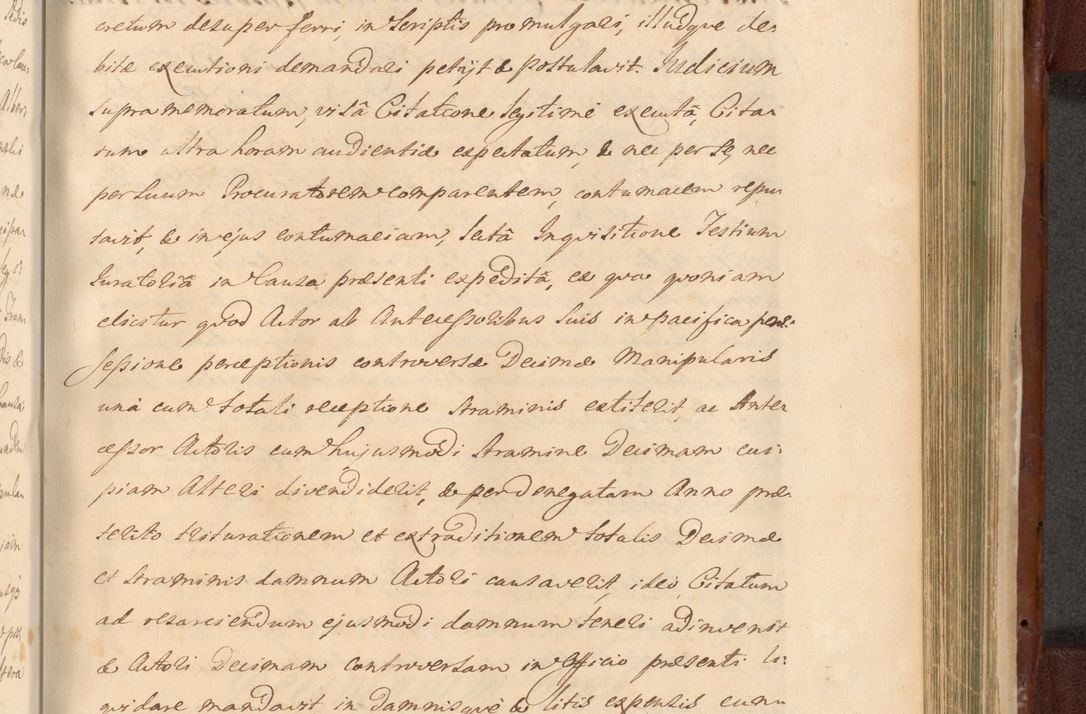 cretum desuper ferri, in Scriptis promulgari, illudque de-
bitæ executioni demandari petijt & postulavit. Judicium
supra memoratum, visâ Citatione legitimè executâ, Cita-
tum ultra horam audientiæ expectatum, & nec per se, nec
per suum Procuratorem comparentem, contumacem repu-
tavit, & in ejus contumaciam, lectâ Inquisitione Testium
Juratoriâ in Causa præsenti expeditâ, ex qva qvoniam
elicitur qvod Actor ab Antecessoribus suis in pacifica pos-
sessione perceptionis controversæ Decimæ Manipularis
unà cum totali receptione straminis extiterit, ac Ante-
cessor Actoris cum hujusmodi stramine Decimam cui-
piam Alteri divendiderit, & per denegatam Anno præ-
terito triturationem et extraditionem totalis Decimæ
et straminis damnum Actori causaverit, ideo Citatum
ad resarciendum ejusmodi damnum teneri adinvenit
& Actori Decimam controversam in Officio præsenti li-
qvidare mandavit in damnisqvè & litis expensis eum